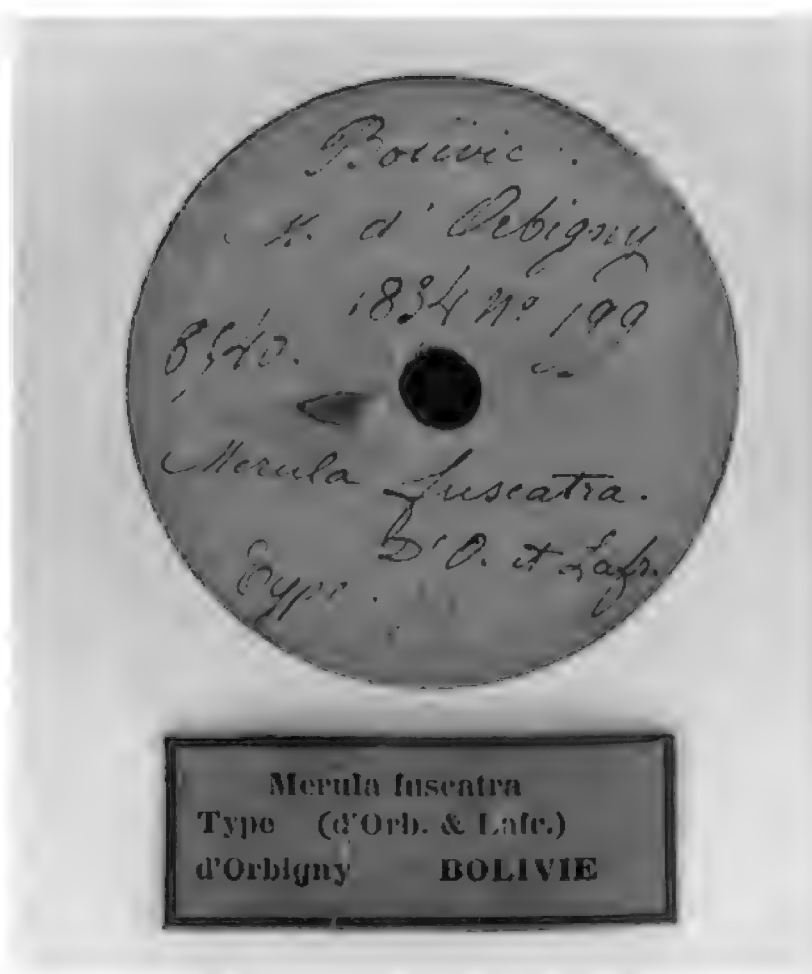 Bolivie.
M. d'Orbigny
1834 nº 199
Merula fuscatra.
D'O. et Lafr.
Type.
Merula fuscatra
Type (d'Orb. & Lafr.)
d'Orbigny BOLIVIE